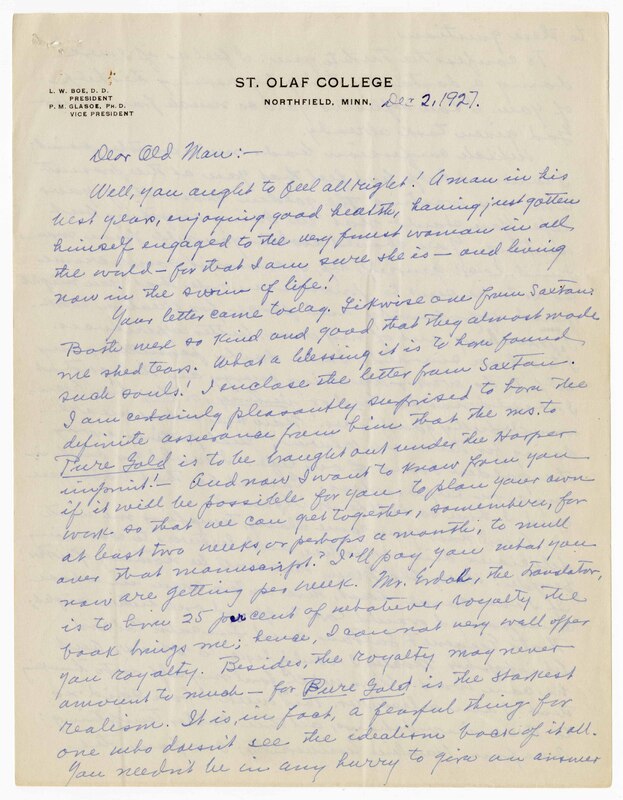 ST. OLAF COLLEGE
NORTHFIELD, MINN. Dec 2, 1927.
L. W. BOE, D. D.
PRESIDENT
P. M. GLASOE, PH. D.
VICE PRESIDENT
Dear Old Man:-
Well, you aught to feel all right! A man in his
best years, enjoying good health, having just gotten
himself engaged to the very finest woman in all
the world – for that I am sure she is – and living
now in the swim of life!
Your letter came today. Likewise one from Saxton.
Both were so kind and good that they almost made
me shed tears. What a blessing it is to have found
such souls! I enclose the letter from Saxton.
I am certainly pleasantly surprised to have the
definite assurance from him that the ms. to
Pure Gold is to be brought out under the Harper
imprint! – And now I want to know from you
if it will be possible for you to plan your own
work so that we can get together, somewhere, for
at least two weeks, or perhaps a month, to mull
over that manuscript? I'll pay you what you
now are getting per week. Mr. Erdahl, the translator,
is to have 25 per cent of whatever royalty the
book brings me; hence, I cannot very well offer
you royalty. Besides, the royalty may never
amount to much – for Pure Gold is the starkest
realism. It is, in fact, a fearful thing for
one who doesn't see the idealism back of it all.
You needn't be in any hurry to give an answer